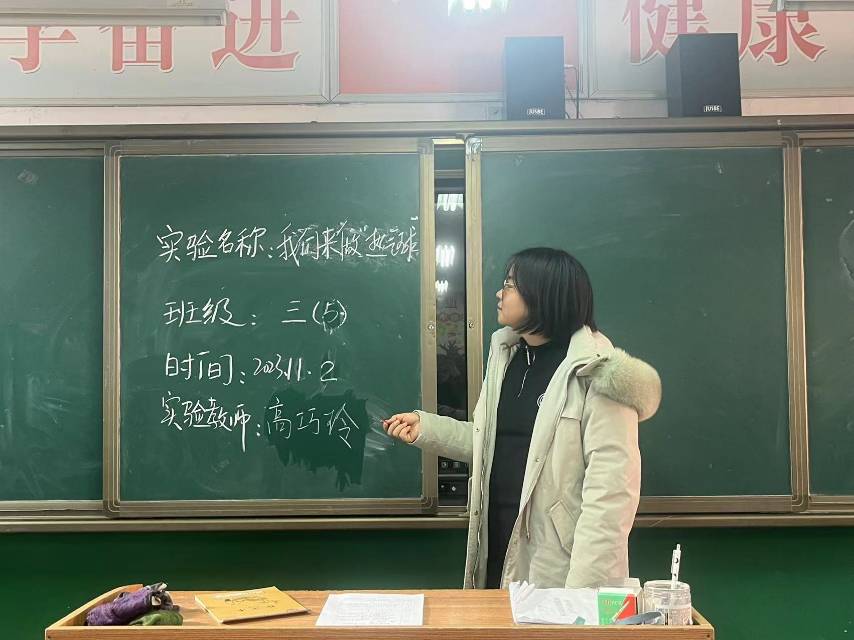 学奋进
健康
JUSBE
JUSBE
实验名称：我们来做"热气球
班级：三(5)
时间：2023.11.2
实验教师：高巧玲